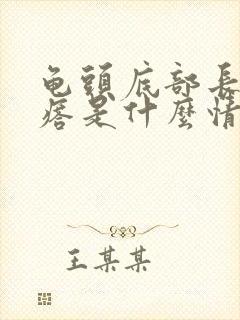 龟頭底部長
痞是什麼情
王某某